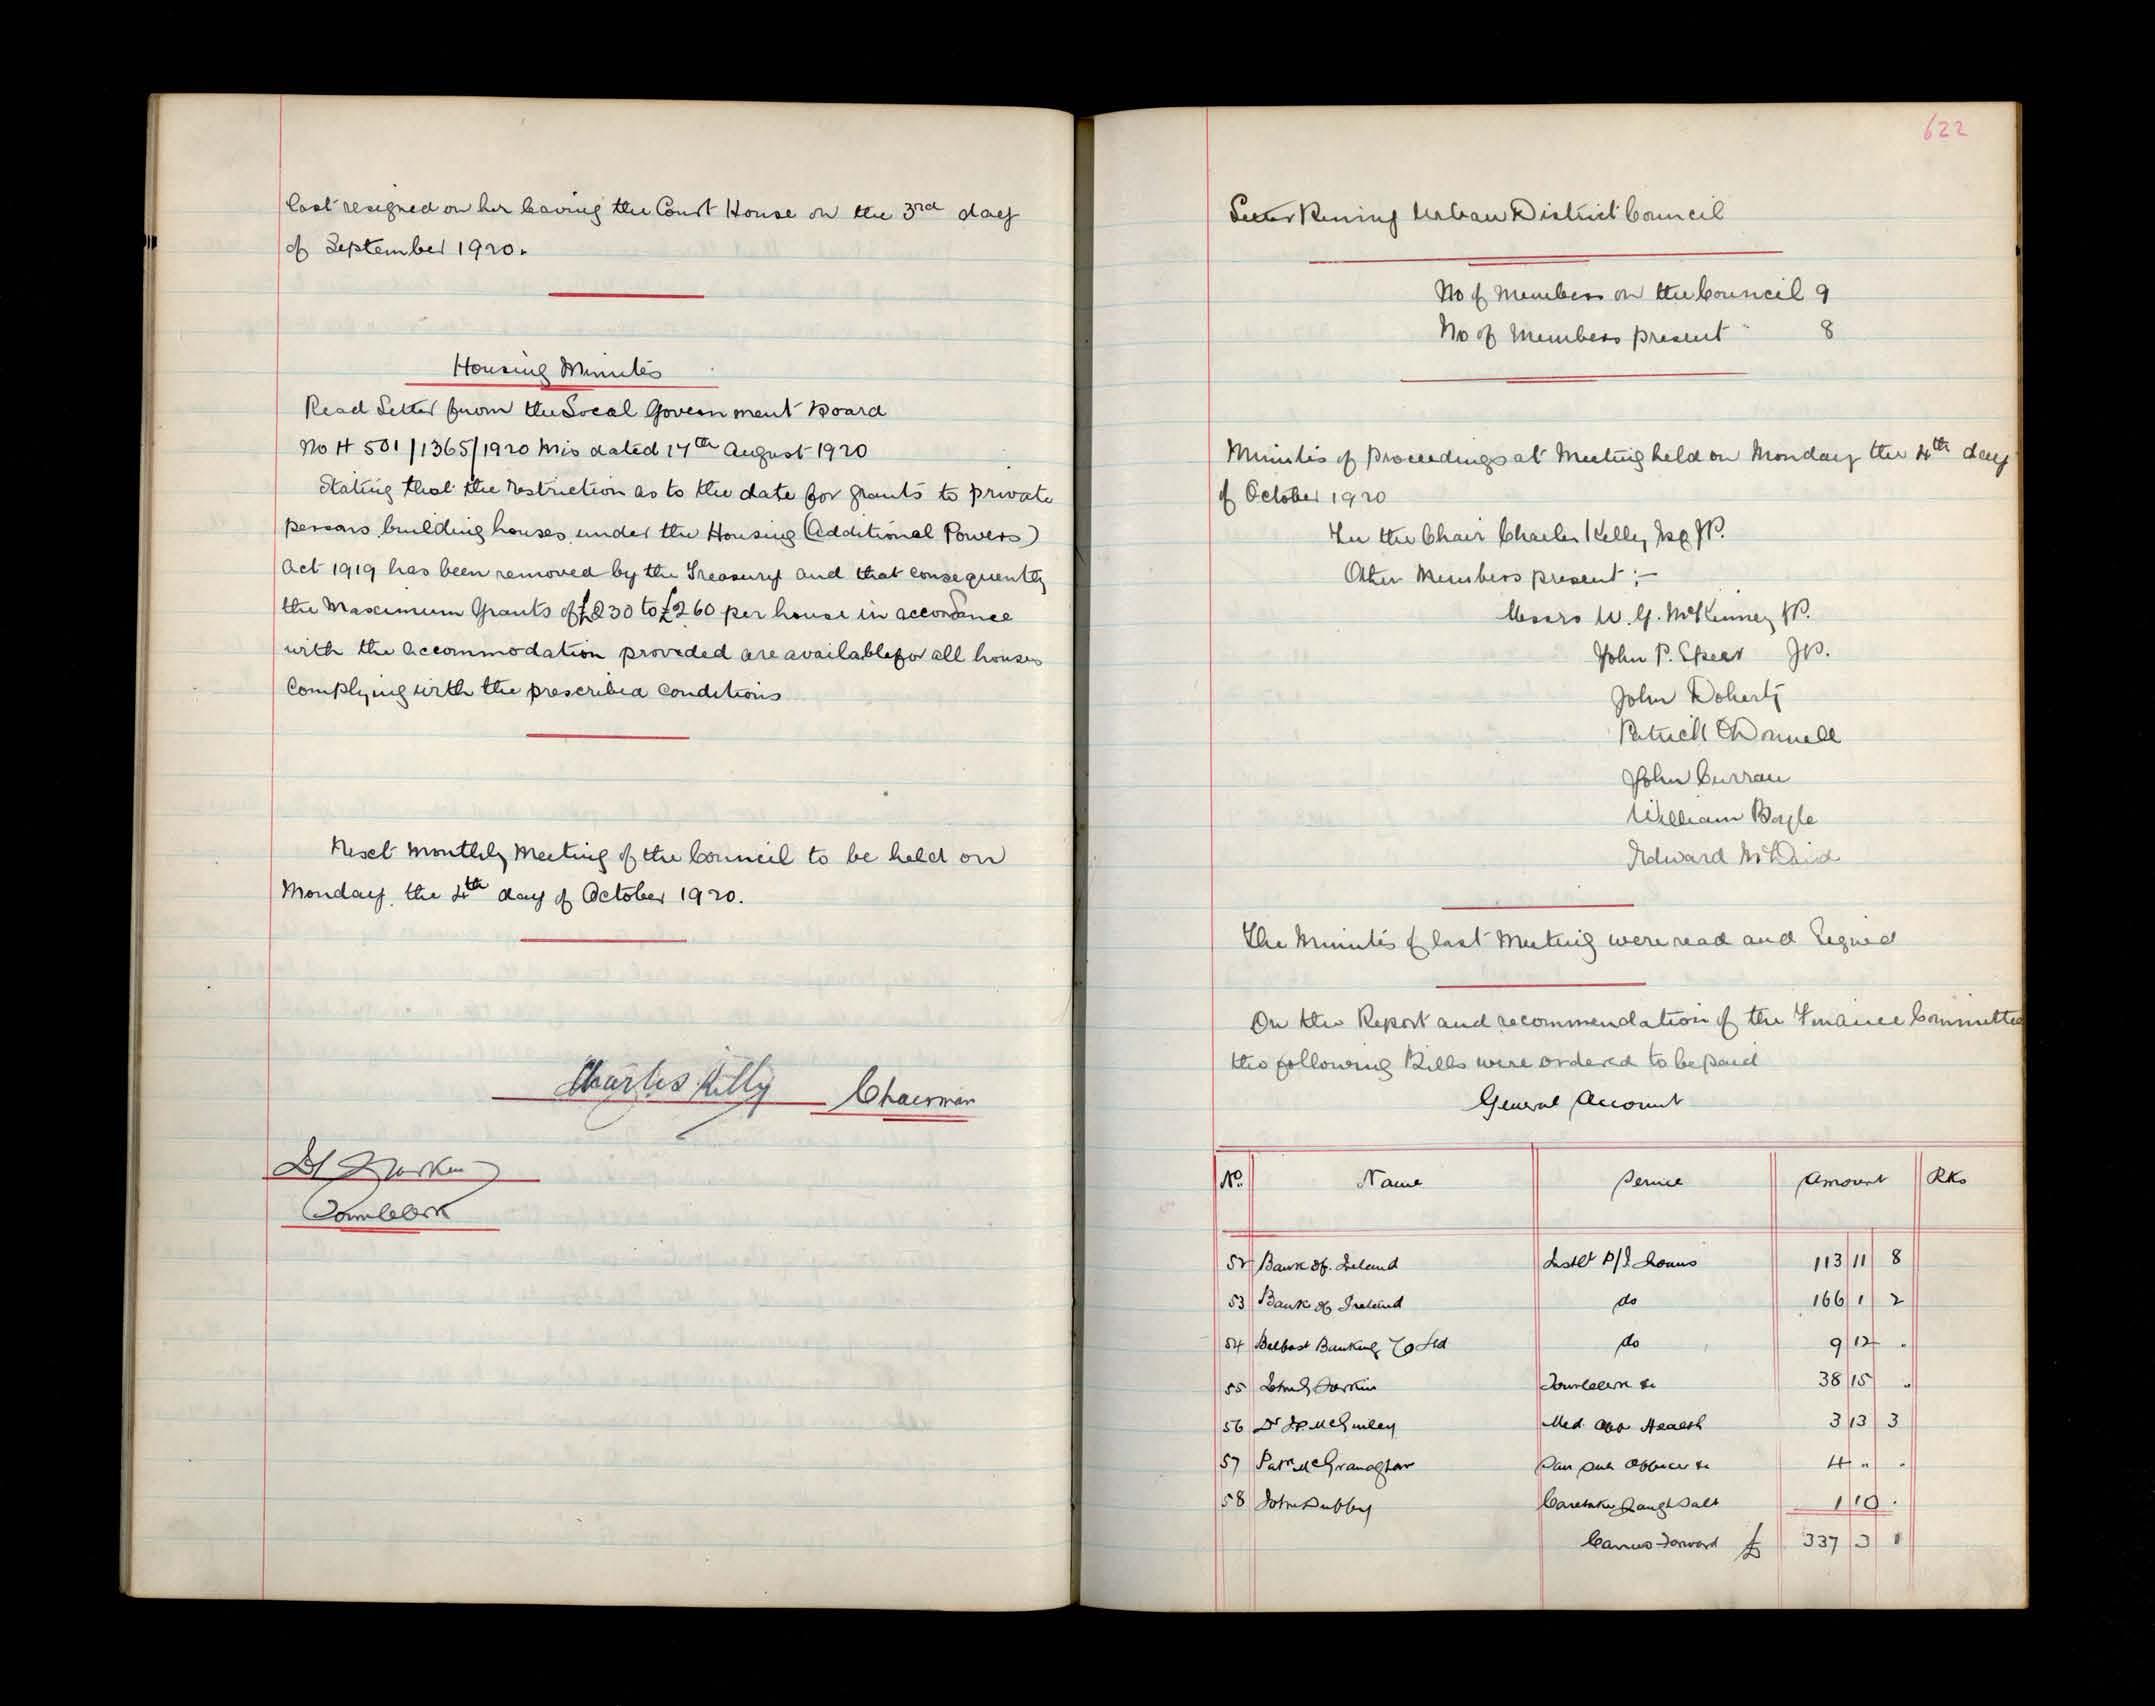 last resigned on her leaving the Court House on the 3rd day
of September 1920.
Housing Minutes
Read Letter from the Local Government Board
No H 501/1365/1920 Mis dated 17th August 1920
Stating that the restriction as to the date for grants to private
persons building houses under the Housing (Additional Powers)
Act 1919 has been removed by the Treasury and that consequently
the Maximum Grants of £230 to £260 per house in accordance
with the accommodation provided are available for all houses
Complying with the prescribed conditions
Next Monthly Meeting of the Council to be held on
Monday the 4th day of October 1920.
Charles Kelly Chairman
Town Clerk
622
Letterkenny Urban District Council
No of Members on the Council 9
No of Members present 8
Minutes of Proceedings at Meeting held on Monday the 4th day
of October 1920
In the Chair Charles Kelly Esq JP.
Other Members present :-
Messrs W. G. McKinney JP.
John P. Speer JP.
John Doherty
Patrick O'Donnell
John Curran
William Boyle
Edward McDaid
The Minutes of last Meeting were read and Signed
On the Report and recommendation of the Finance Committee
the following Bills were ordered to be paid
General Account
No. Name Service Amount Rks
52 Bank of Ireland Instlt P/I Loans 113 11 8
53 Bank of Ireland do 166 1 2
54 Belfast Banking Co Ltd do 9 12 .
55 Larkin Town Clerk &c 38 15 "
56 Dr J.P. McGinley Med. Off Health 3 13 3
57 Patk McGranaghan San Sub Officer &c 4 " "
58 John Duffy Caretaker 1 10 .
Carried Forward £ 337 3 1